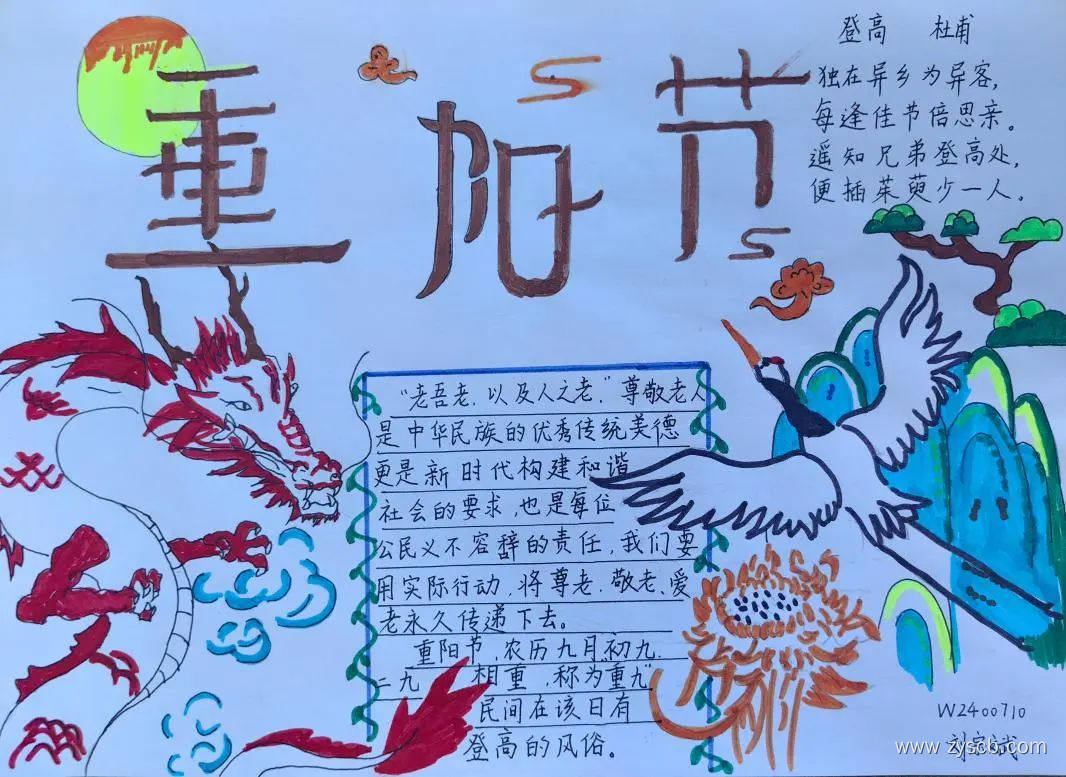 重阳节
登高 杜甫
独在异乡为异客，
每逢佳节倍思亲。
遥知兄弟登高处，
便插茱萸少一人。
“老吾老，以及人之老，”尊敬老人
是中华民族的优秀传统美德
更是新时代构建和谐
社会的要求，也是每位
公民义不容辞的责任，我们要
用实际行动，将尊老、敬老、爱
老永久传递下去。
重阳节，农历九月初九，
二九相重，称为“重九”
民间在该日有
登高的风俗。
W2400710
www.zyscb.com